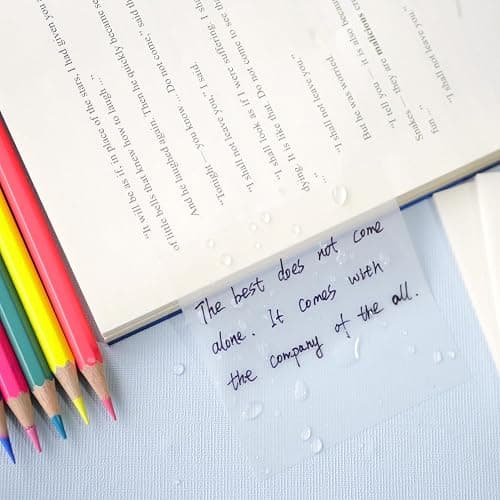 "It will be as if, in place of the stars, I had given you
of little bells that knew how to laugh..."
And he laughed again. Then he quickly became
"Tonight — you know ... Do not come," said
"I shall not leave you," I said.
"I shall look as if I were suffering. I
dying. It is like that. Do not come to see
"I shall not leave you."
But he was worried
"I tell you — it is also
Snakes — they are malicious
fun ..."
"I shall not leave you,"
The best does not come
alone. It comes with
the company of the all.